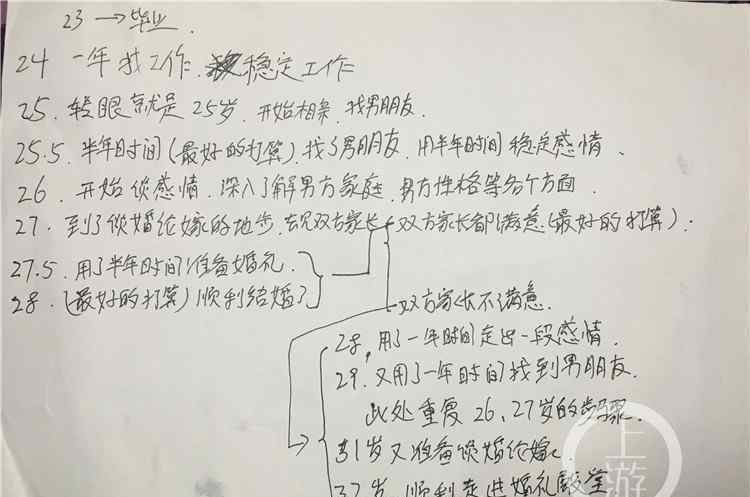 23 → 毕业.
24 一年找工作. 稳定工作
25. 转眼就是25岁. 开始相亲. 找男朋友.
25.5. 半年时间(最好的打算). 找了男朋友. 用半年时间稳定感情.
26. 开始谈感情. 深入了解男方家庭. 男方性格等各个方面.
27. 到了谈婚论嫁的地步. 去见双方家长 双方家长都满意(最好的打算).
27.5. 用了半年时间准备婚礼.
28. (最好的打算) 顺利结婚了
双方家长不满意.
28. 用了一年时间走出一段感情.
29. 又用了一年时间找到男朋友.
此处重复26、27岁的步骤.
31岁又准备谈婚论嫁.
32岁 顺利走进婚礼殿堂
上游